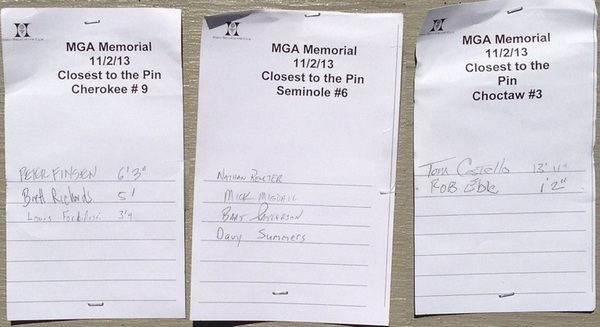 MGA Memorial
11/2/13
Closest to the Pin
Cherokee # 9
PETER FINSEN 6'3"
Brett Richards 5'
Louis 3'9
MGA Memorial
11/2/13
Closest to the Pin
Seminole #6
NATHAN
MICK
BART PATTERSON
Davy Summers
MGA Memorial
11/2/13
Closest to the
Pin
Choctaw #3
Tom Costello 13' 11"
ROB Eble 1'2"